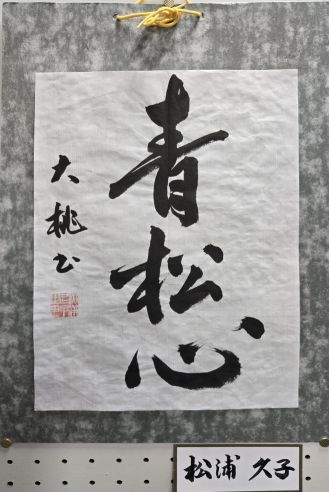 青松心
大桃書
松浦 久子